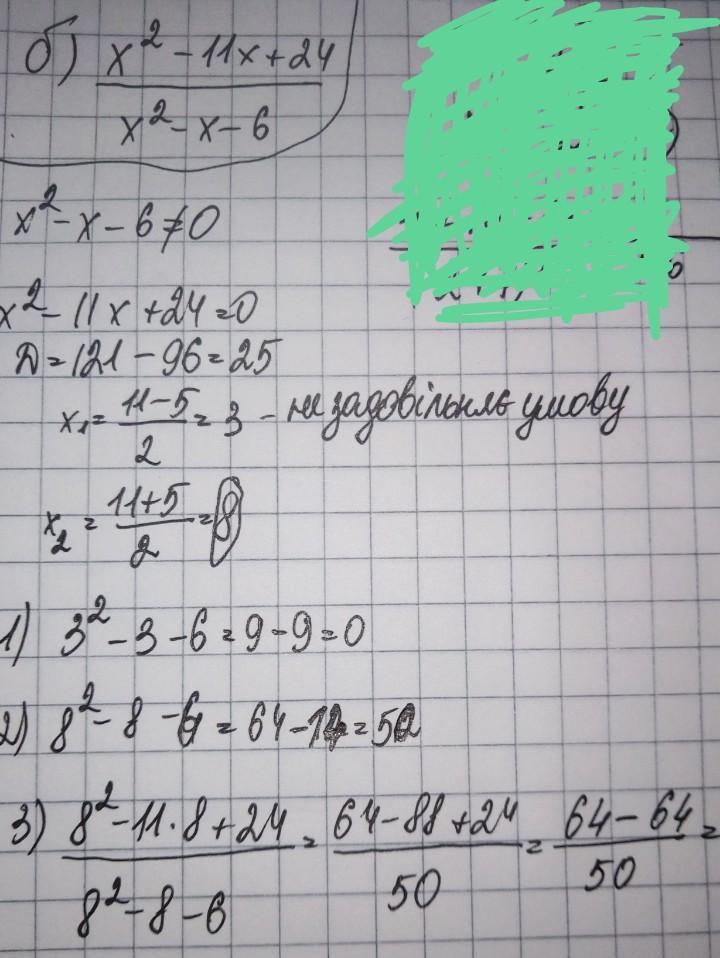 б) x² - 11x + 24
x² - x - 6
x² - x - 6 ≠ 0
x² - 11x + 24 = 0
D = 121 - 96 = 25
x₁ = (11-5)/2 = 3 - не задовільняє умову
x₂ = (11+5)/2 = 8
1) 3² - 3 - 6 = 9 - 9 = 0
2) 8² - 8 - 6 = 64 - 14 = 50
3) (8² - 11·8 + 24)/(8² - 8 - 6) = (64 - 88 + 24)/50 = (64 - 64)/50 =